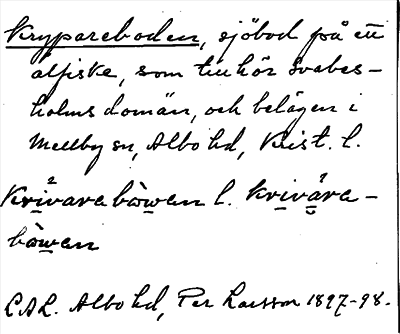 Krypareboden, sjöbod på ett
ålfiske, som tillhör Svabes-
holms domän, och belägen i
Mellby sn, Albo hd, Krist. l.
Krivarabòwen l. Krivära-
bòwen
LAL. Albo hd, Per Larsson 1897-98.